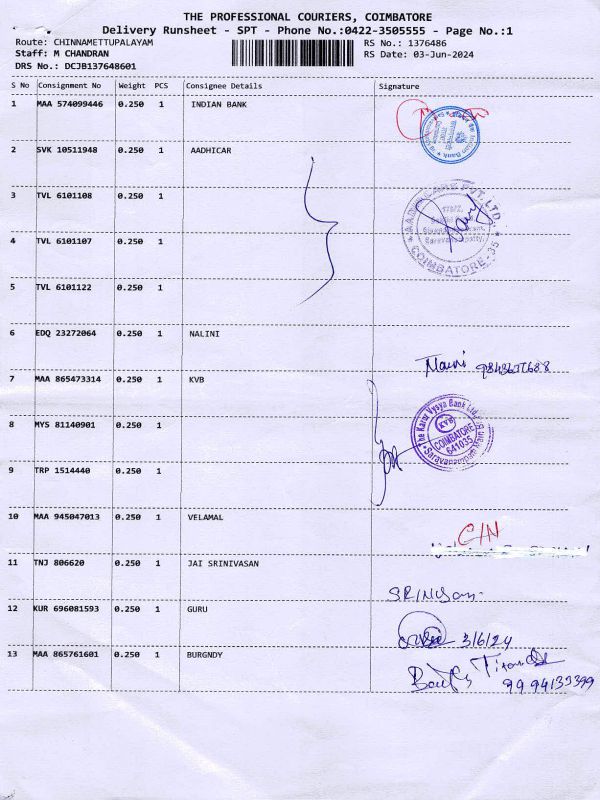 THE PROFESSIONAL COURIERS, COIMBATORE
Delivery Runsheet - SPT - Phone No.:0422-3505555 - Page No.:1
Route: CHINNAMETTUPALAYAM
RS No.: 1376486
Staff: M CHANDRAN
RS Date: 03-Jun-2024
DRS No.: DCJB137648601
S No Consignment No Weight PCS Consignee Details Signature
1 MAA 574099446 0.250 1 INDIAN BANK
2 SVK 10511948 0.250 1 AADHICAR
3 TVL 6101108 0.250 1
AADHI CARE PVT. LTD.
COIMBATORE-35
4 TVL 6101107 0.250 1
5 TVL 6101122 0.250 1
6 EDQ 23272064 0.250 1 NALINI
7 MAA 865473314 0.250 1 KVB
The Karur Vysya Bank Ltd.
KVB
COIMBATORE
641035
8 MYS 81140901 0.250 1
9 TRP 1514440 0.250 1
10 MAA 945047013 0.250 1 VELAMAL
C/N
11 TNJ 806620 0.250 1 JAI SRINIVASAN
12 KUR 696081593 0.250 1 GURU
3/6/24
13 MAA 865761601 0.250 1 BURGNDY
9994133399